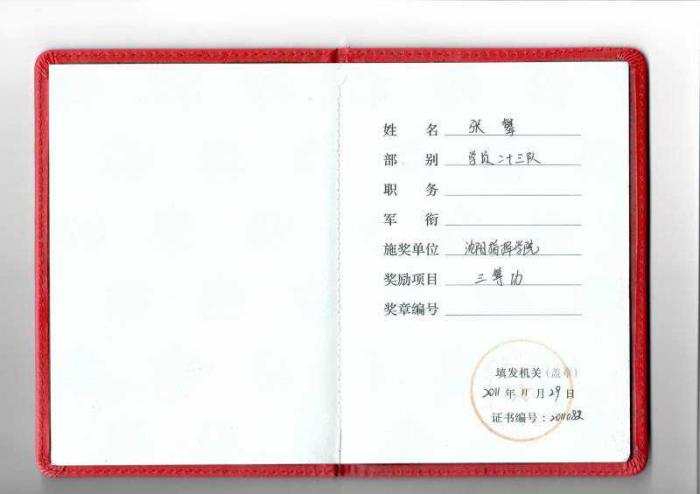 姓 名 张攀
部 别 学员二十三队
职 务
军 衔
施奖单位 沈阳指挥学院
奖励项目 三等功
奖章编号
填发机关(盖章)
2011年11月29日
证书编号: